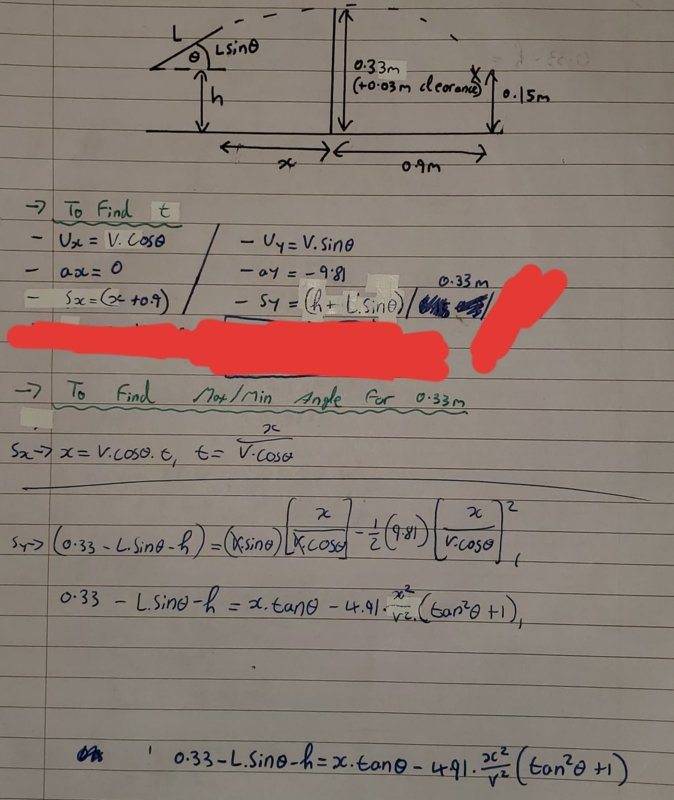 L
θ
Lsinθ
h
0.33m
(+0.03m clearance)
0.15m
x
0.9m
→ To Find t
- Ux = V.Cosθ / - Uy = V.sinθ
- ax = 0 - ay = -9.81
- Sx = (x + 0.9) - Sy = (h + L.sinθ) / 0.33m /
→ To Find Max/Min Angle For 0.33m
Sx → x = V.cosθ.t, t = x / V.cosθ
Sy → (0.33 - L.Sinθ - h) = (V.sinθ) [x / V.cosθ] - 1/2 (9.81) [x / V.cosθ]²,
0.33 - L.sinθ - h = x.tanθ - 4.91. x²/v². (tan²θ + 1),
0.33 - L.Sinθ - h = x.tanθ - 4.91. x²/v² (tan²θ + 1)